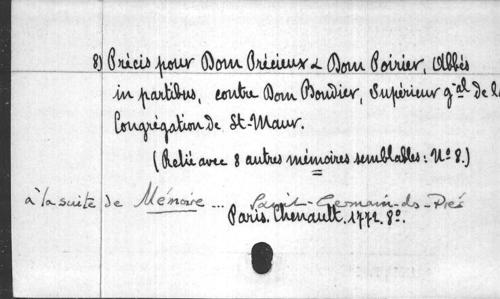 8) Précis pour Dom Précieux & Dom Poirier, Abbés
in partibus, contre Dom Boudier, Supérieur gal de la
Congrégation de St-Maur.
(Relié avec 8 autres mémoires semblables: No 8.)
à la suite de Mémoire ... Saint-Germain-ds-Prés
Paris. Chenault. 1772. 8o.